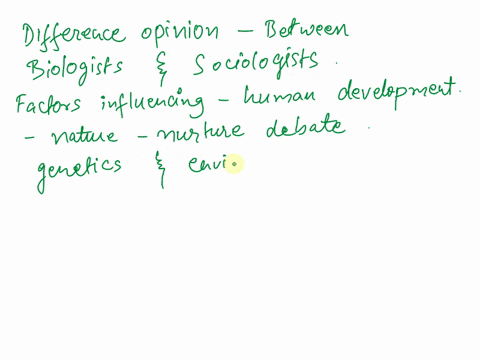 Difference opinion - Between
Biologists & Sociologists.
Factors influencing - human development.
- nature - nurture debate.
genetics & envi